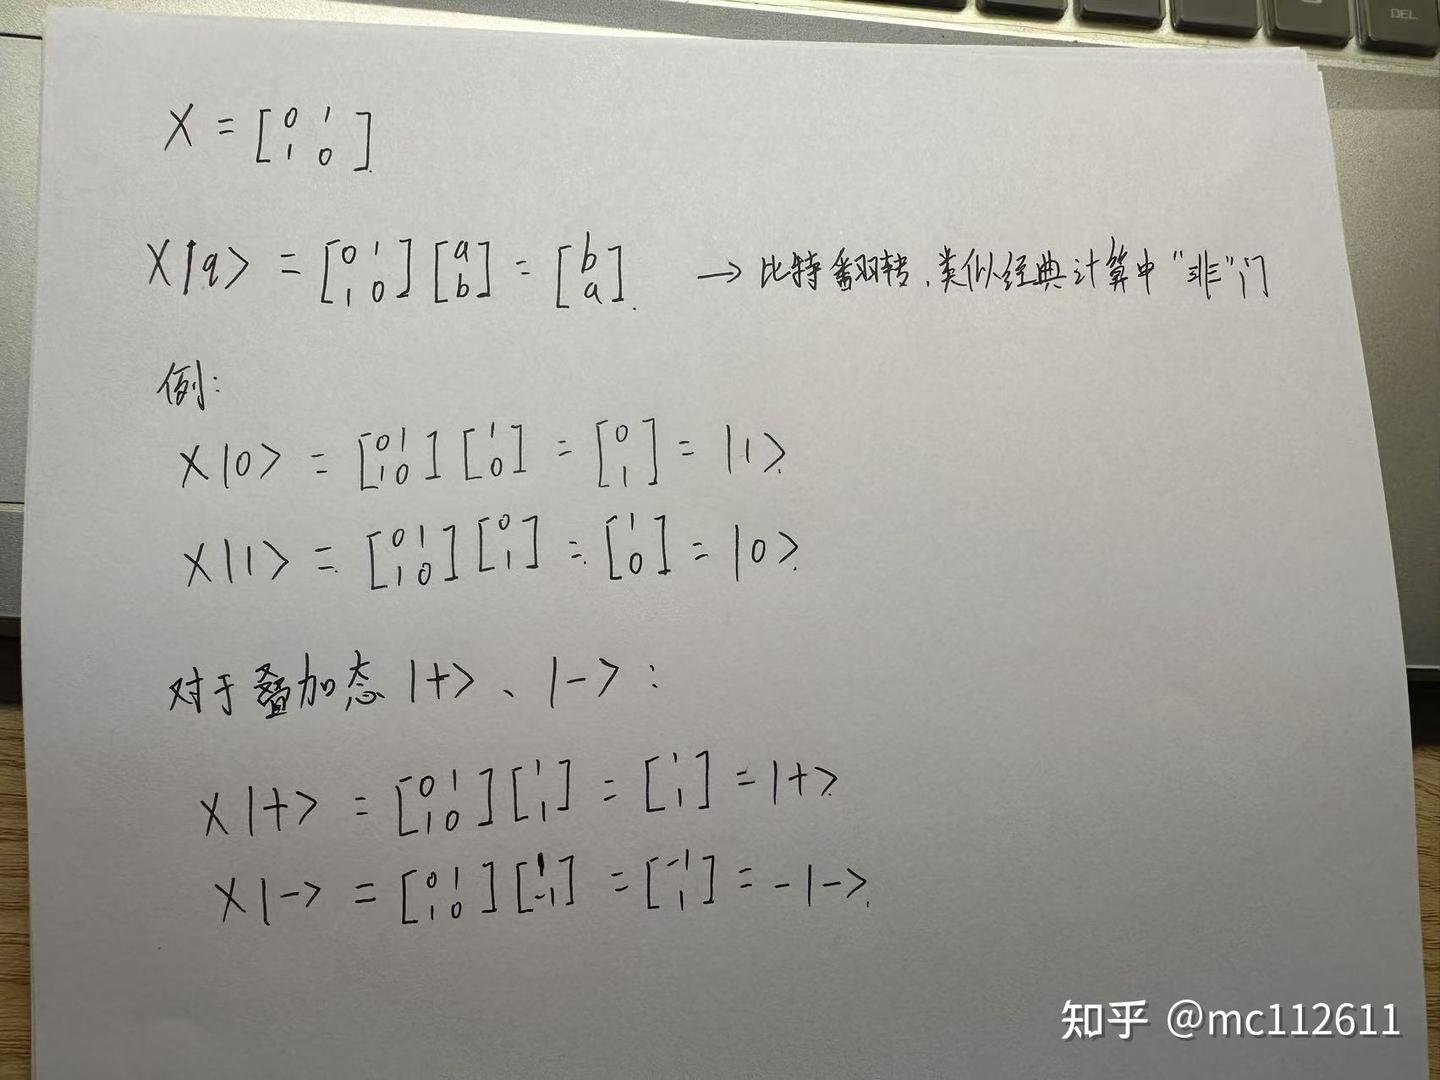 DEL
X = [0 1 1 0]
X|q> = [0 1 1 0] [a b] = [b a]. → 比特翻转,类似经典计算中"非"门
例:
X|0> = [0 1 1 0] [1 0] = [0 1] = |1>.
X|1> = [0 1 1 0] [0 1] = [1 0] = |0>.
对于叠加态 |+>、|->:
X|+> = [0 1 1 0] [1 1] = [1 1] = |+>.
X|-> = [0 1 1 0] [1 -1] = [-1 1] = -|->.
知乎 @mc112611